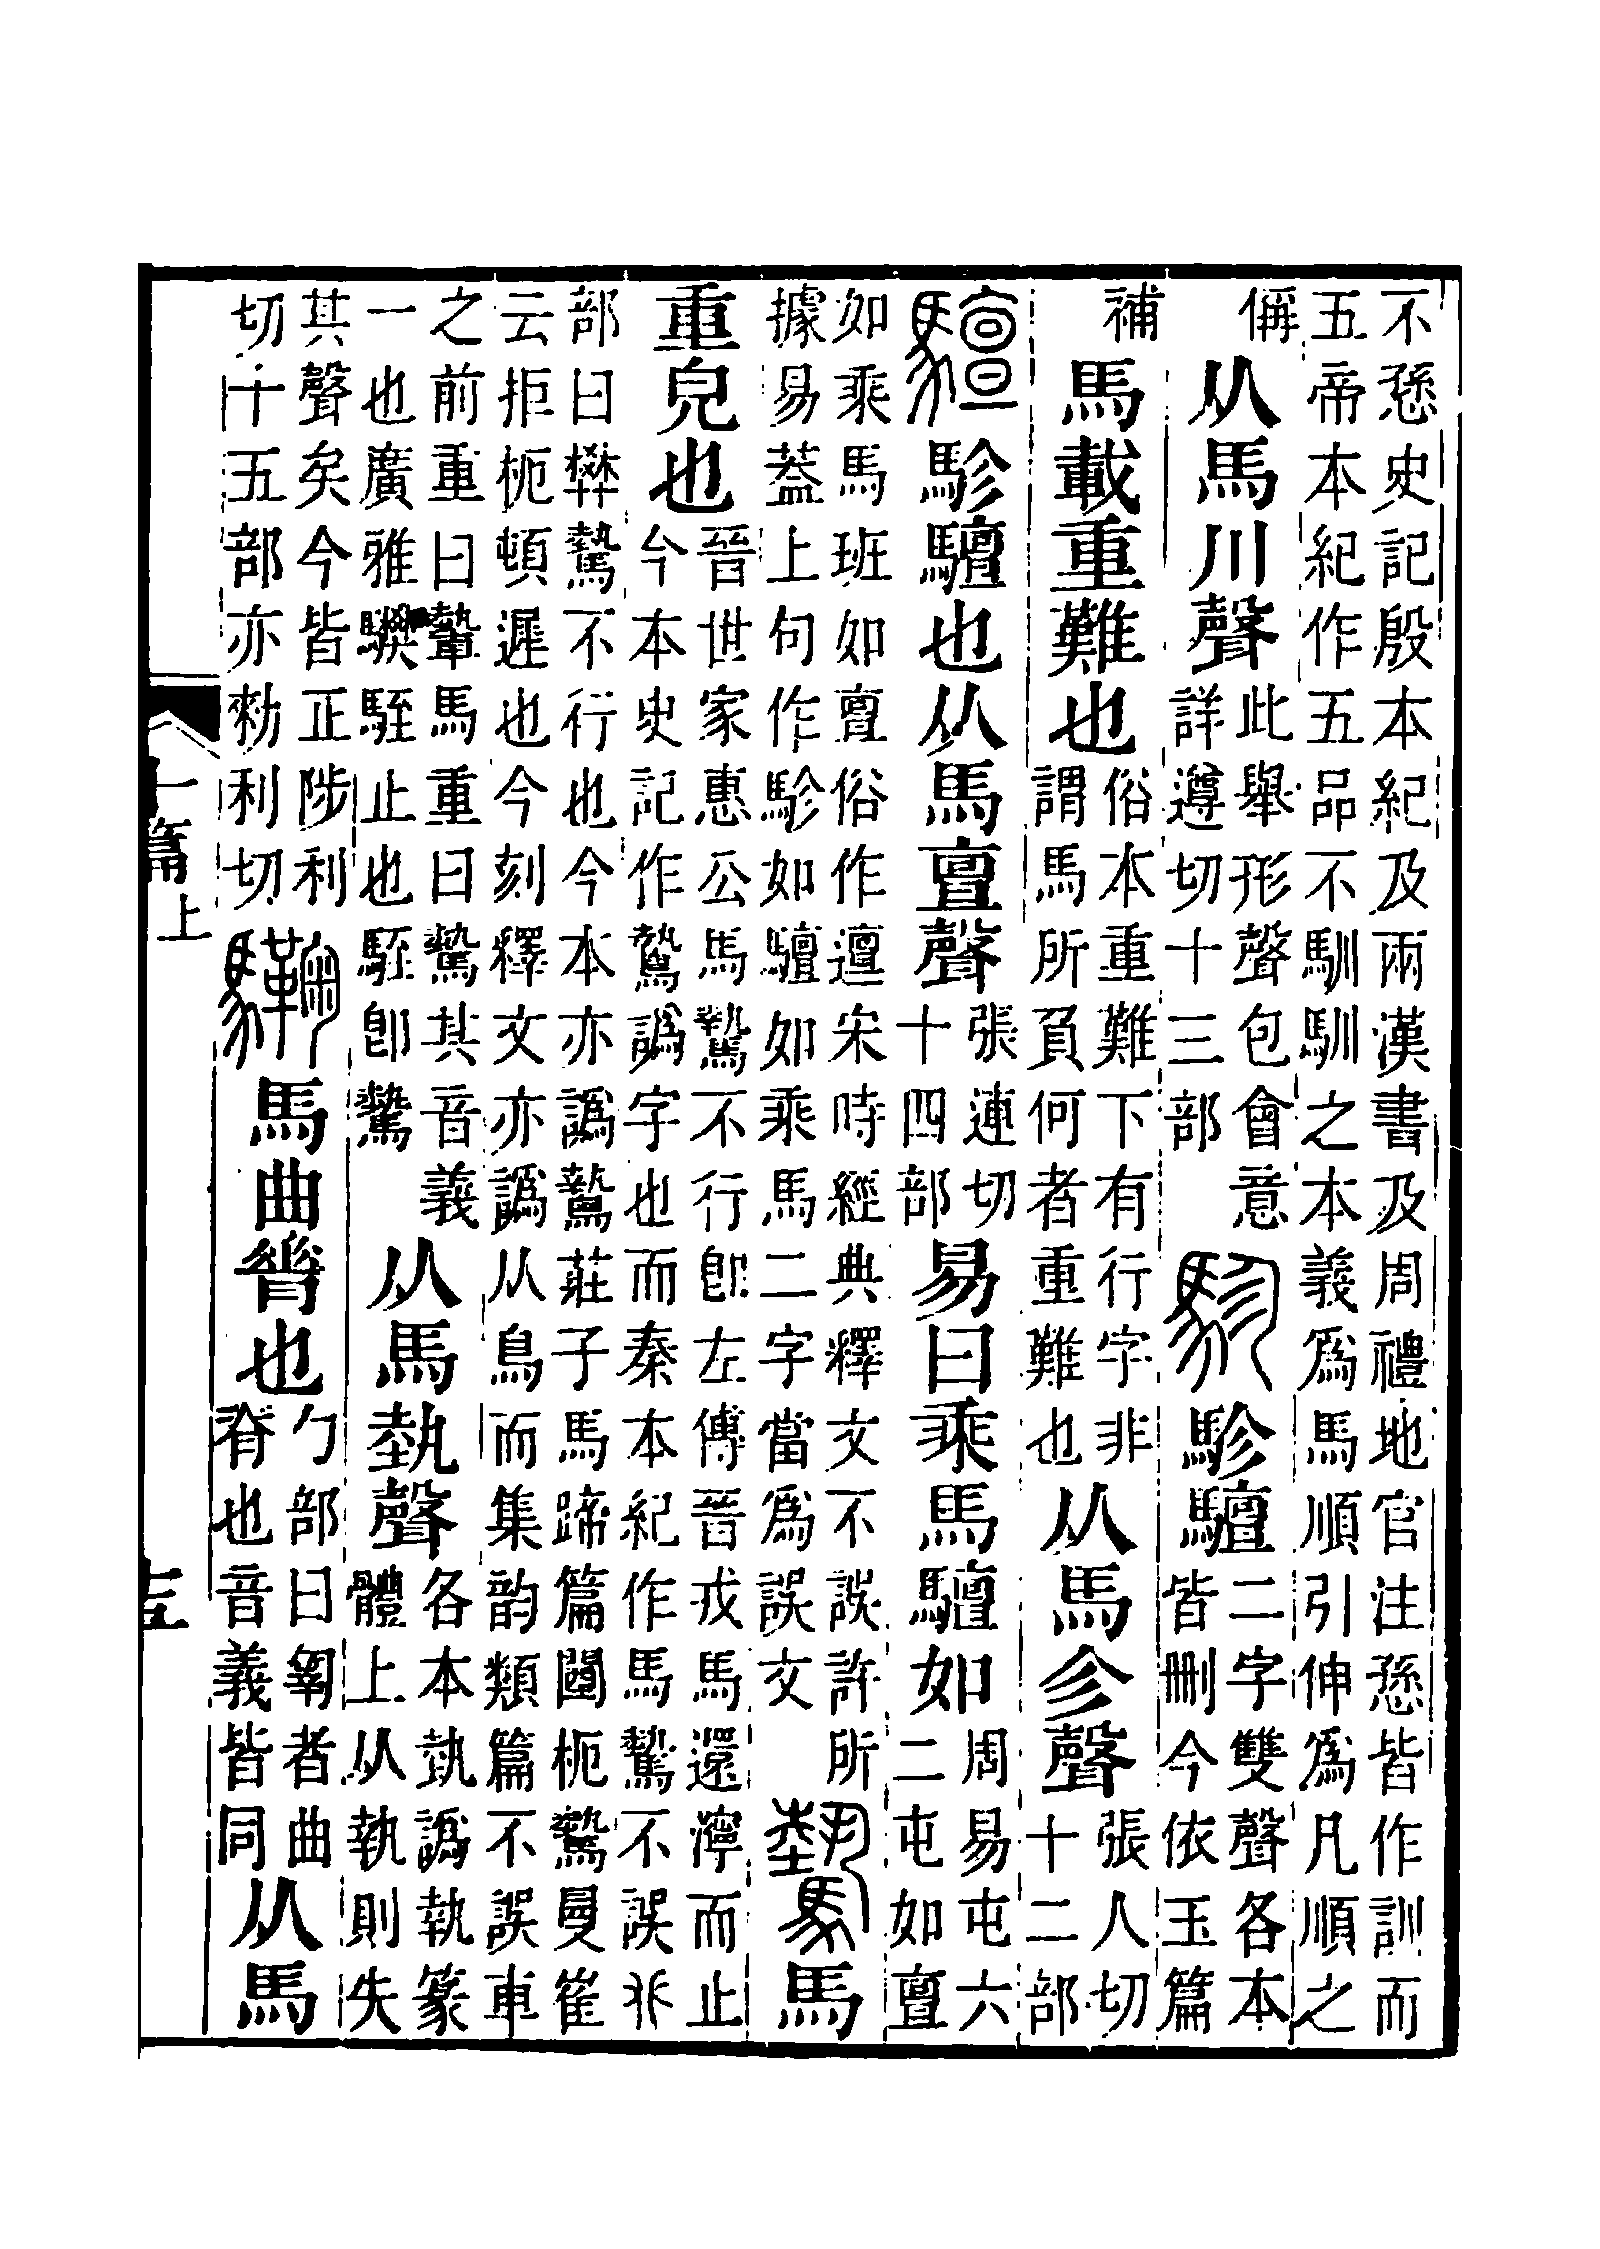 不愻史記殷本紀及兩漢書及周禮地官注愻皆作訓而
五帝本紀作五品不馴馴之本義爲馬順引伸爲凡順之
偁从馬川聲此舉形聲包會意詳遵切十三部駗駗驙二字雙聲各本皆刪今依玉篇
補馬載重難也俗本重難下有行字非謂馬所負何者重難也从馬㐱聲張人切十二部
驙駗驙也从馬亶聲張連切十四部易曰乘馬驙如周易屯六二屯如亶
如乘馬班如亶俗作邅宋時經典釋文不誤許所據易蓋上句作駗如驙如乘馬二字當爲誤文騺馬
重皃也晉世家惠公馬騺不行卽左傳晉戎馬還濘而止今本史記作鷙譌字也而秦本紀作馬騺不誤𠬜
部曰樊騺不行也今本亦譌鷙莊子馬蹄篇闉枙騺曼崔云拒枙頓遲也今刻釋文亦譌从鳥而集韵類篇不誤車
之前重曰𨎌馬重曰騺其音義一也廣雅駤止也駤卽騺从馬埶聲各本埶譌執篆體上从執則失
其聲矣今皆正陟利切十五部亦勑利切驧馬曲脊也勹部曰匑者曲脊也音義皆同从馬
十篇上 十五